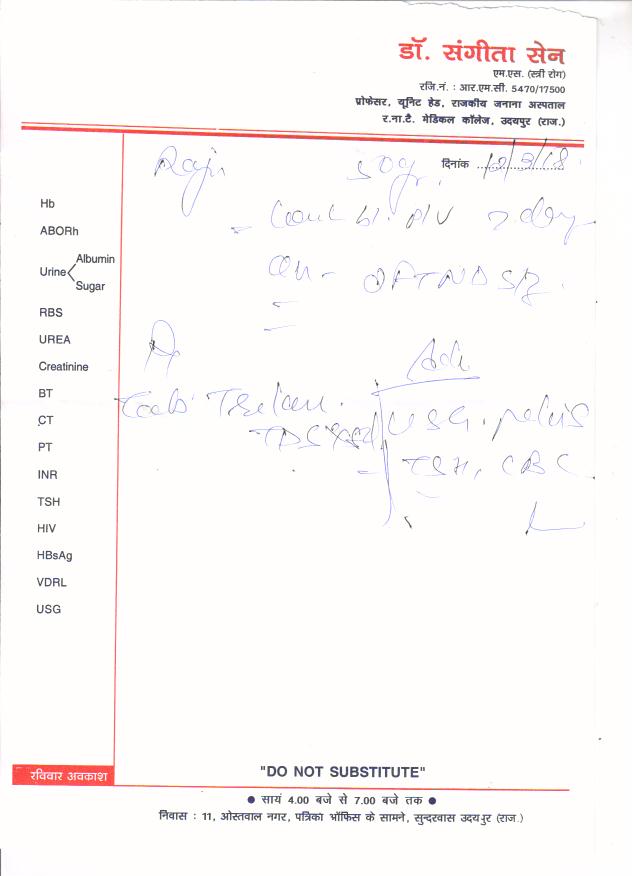 डॉ. संगीता सेन
एम.एस. (स्त्री रोग)
रजि.नं. : आर.एम.सी. 5470/17500
प्रोफेसर, यूनिट हेड, राजकीय जनाना अस्पताल
र.ना.टै. मेडिकल कॉलेज, उदयपुर (राज.)
दिनांक 12/3/18
Hb
ABORh
Albumin
Urine
Sugar
RBS
UREA
Creatinine
BT
Adv
CT
Tab.
TDS USG. pelvis
PT
TSH, CBC
INR
TSH
HIV
HBsAg
VDRL
USG
रविवार अवकाश
"DO NOT SUBSTITUTE"
● सायं 4.00 बजे से 7.00 बजे तक ●
निवास : 11, ओस्तवाल नगर, पत्रिका भॉफिस के सामने, सुन्दरवास उदयपुर (राज.)